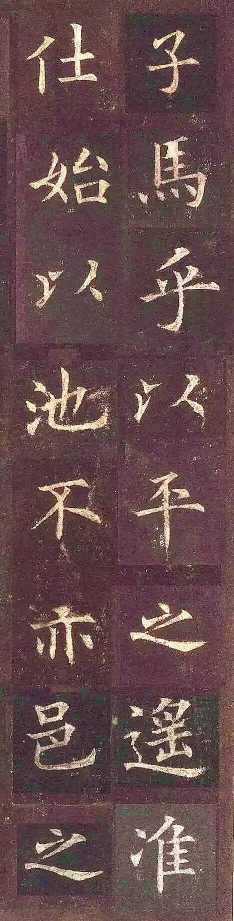 子馬乎以平之遥准
仕始以池不亦邑之